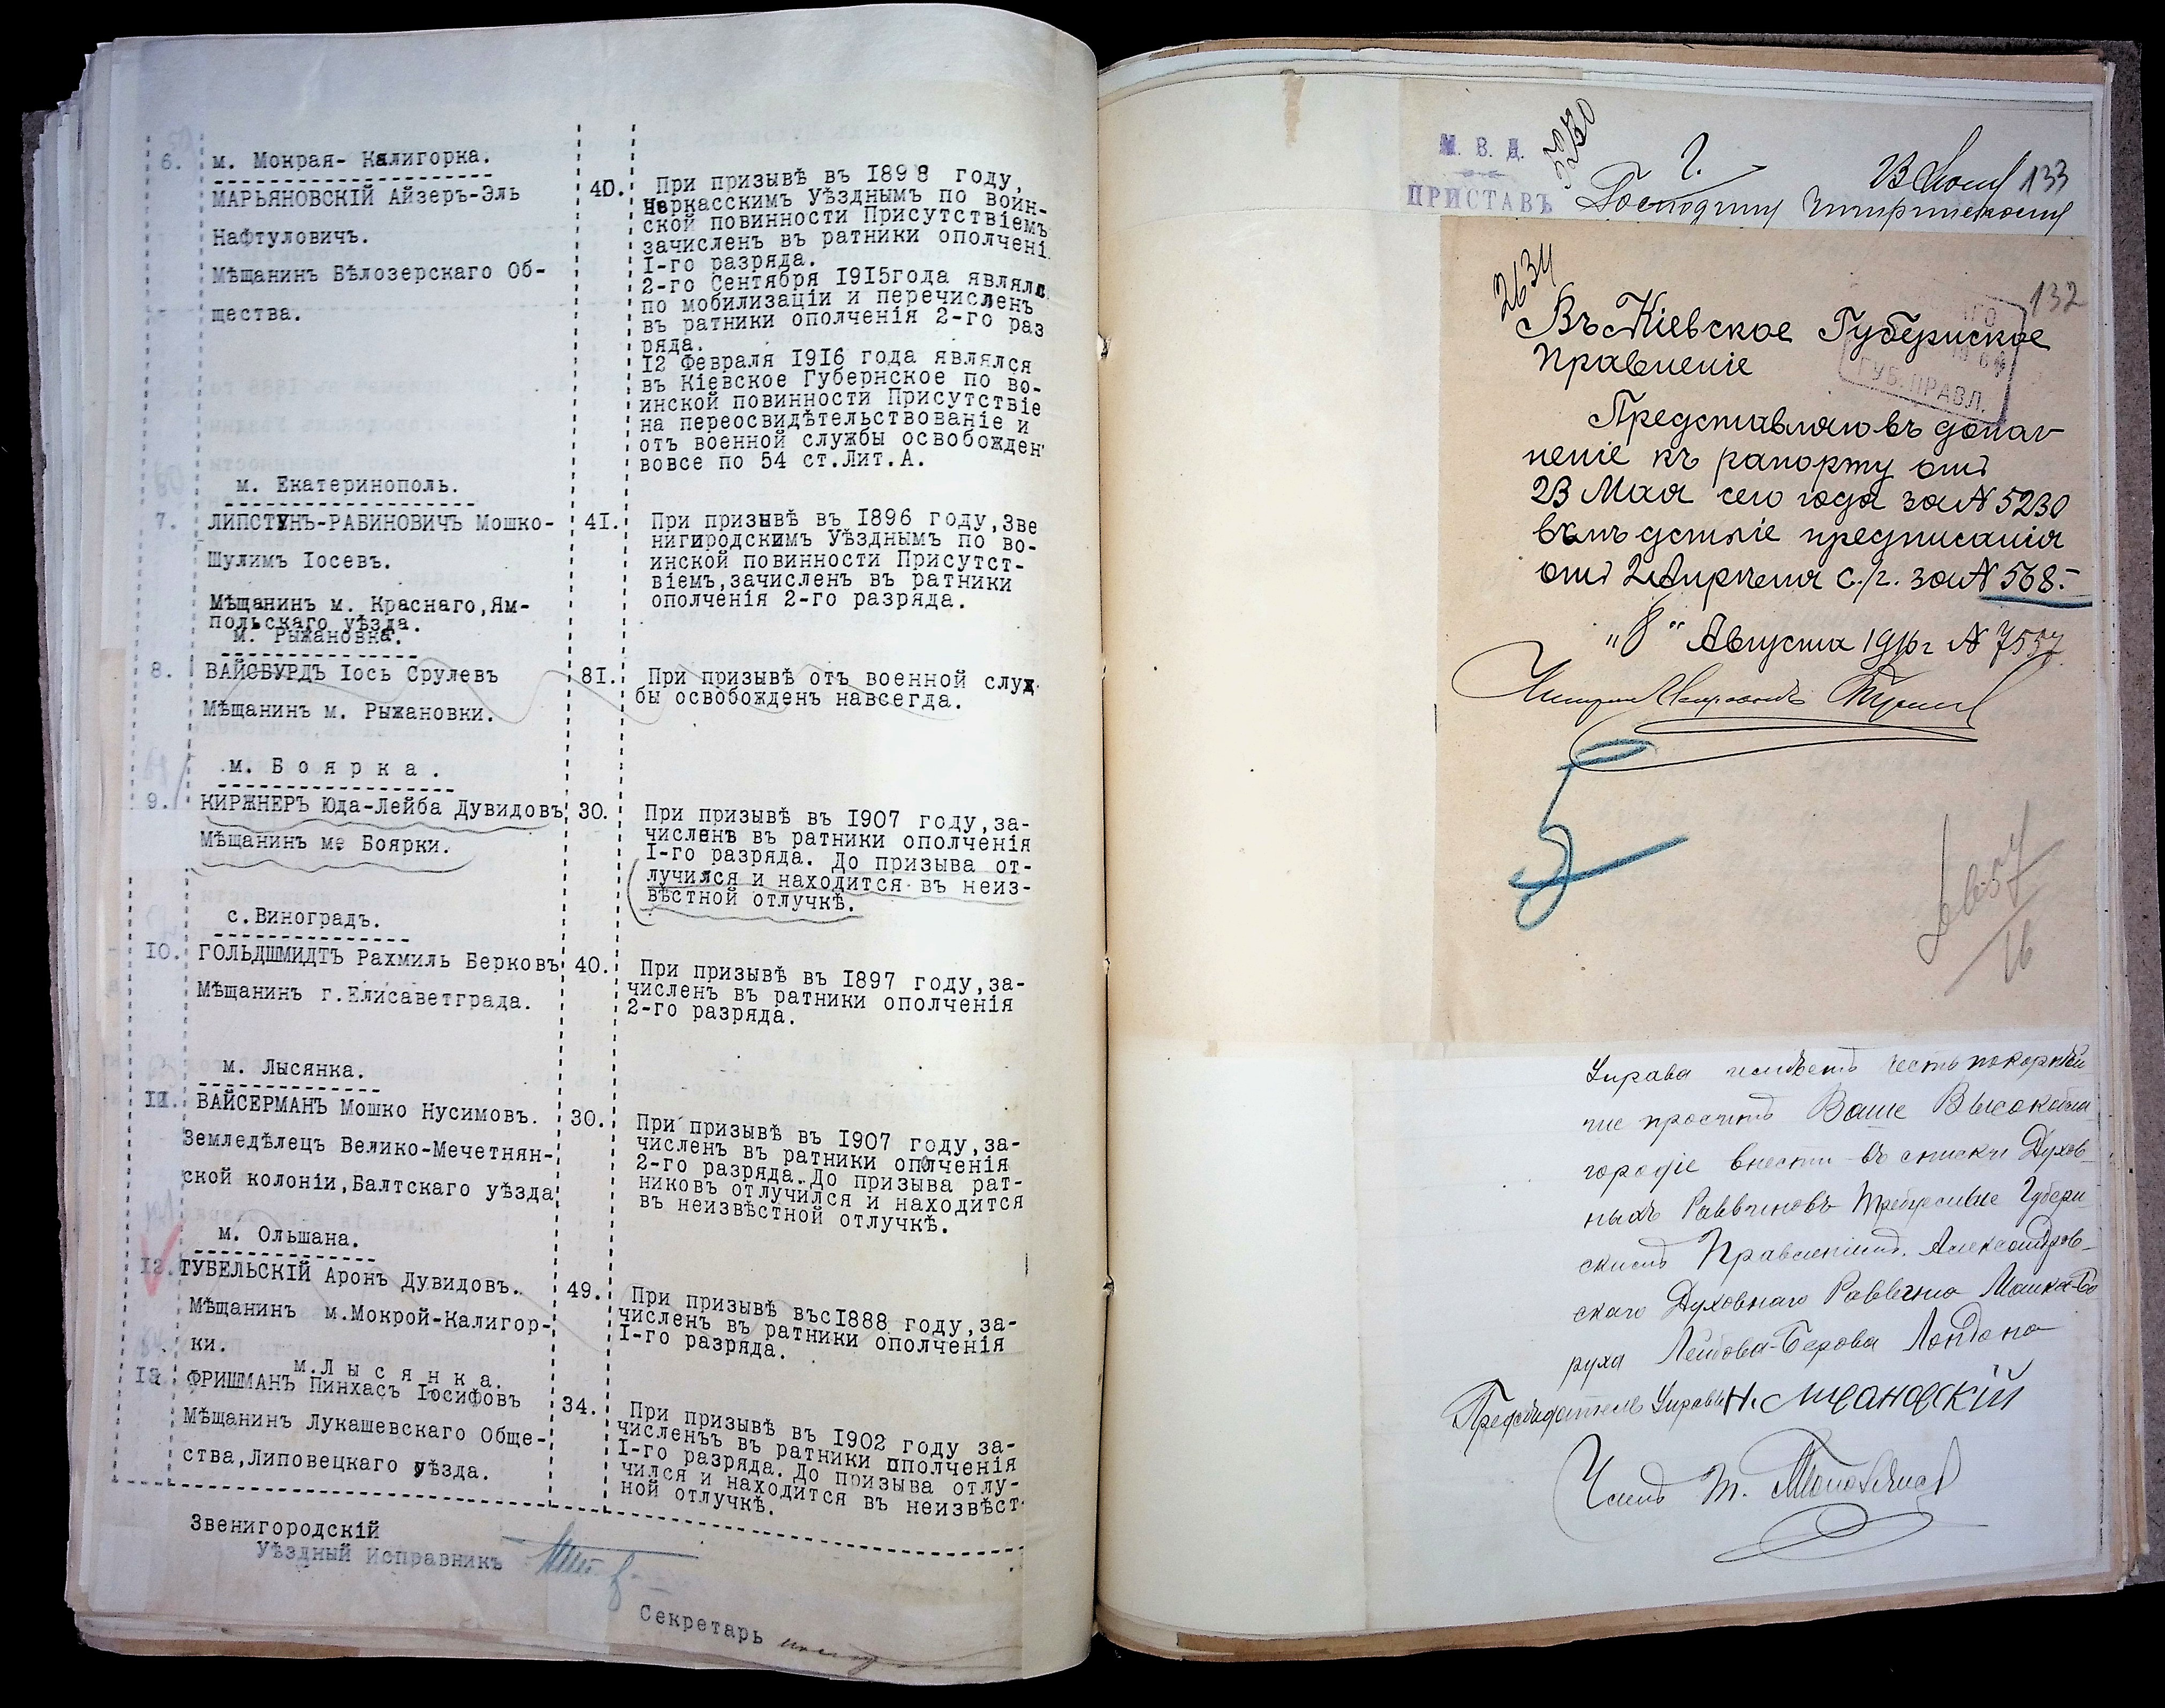 6. м. Мокрая- Калигорка.
МАРЬЯНОВСКІЙ Айзеръ-Эль
Нафтуловичъ.
Мѣщанинъ Бѣлозерскаго Об-
щества.
40. При призывѣ въ 1898 году,
Черкасскимъ Уѣзднымъ по воин-
ской повинности Присутствіемъ
зачисленъ въ ратники ополчені
I-го разряда.
2-го Сентября 1915года являлс
по мобилизаціи и перечисленъ
въ ратники ополченія 2-го раз
ряда.
12 Февраля 1916 года являлся
въ Кіевское Губернское по во-
инской повинности Присутствіе
на переосвидѣтельствованіе и
отъ военной службы освобожден
вовсе по 54 ст.Лит.А.
м. Екатеринополь.
7. ЛИПСТУНЪ-РАБИНОВИЧЪ Мошко-
Шулимъ Іосевъ.
Мѣщанинъ м. Краснаго,Ям-
польскаго уѣзда.
41. При призывѣ въ 1896 году,Зве
нигородскимъ Уѣзднымъ по во-
инской повинности Присутст-
віемъ,зачисленъ въ ратники
ополченія 2-го разряда.
м. Рыжановка.
8. ВАЙСБУРДЪ Іось Срулевъ
Мѣщанинъ м. Рыжановки.
81. При призывѣ отъ военной служ
бы освобожденъ навсегда.
м. Боярка.
9. КИРЖНЕРЪ Юда-Лейба Дувидовъ
Мѣщанинъ м. Боярки.
30. При призывѣ въ 1907 году,за-
численъ въ ратники ополченія
I-го разряда. До призыва от-
лучился и находится въ неиз-
вѣстной отлучкѣ.
с.Виноградъ.
10. ГОЛЬДШМИДТЪ Рахмиль Берковъ
Мѣщанинъ г.Елисаветграда.
40. При призывѣ въ 1897 году,за-
численъ въ ратники ополченія
2-го разряда.
м. Лысянка.
11. ВАЙСЕРМАНЪ Мошко Нусимовъ.
Земледѣлецъ Велико-Мечетнян-
ской колоніи,Балтскаго уѣзда
30. При призывѣ въ 1907 году,за-
численъ въ ратники ополченія
2-го разряда. До призыва рат-
никовъ отлучился и находится
въ неизвѣстной отлучкѣ.
м. Ольшана.
12. ТУБЕЛЬСКІЙ Аронъ Дувидовъ.
Мѣщанинъ м.Мокрой-Калигор-
ки.
49. При призывѣ въс1888 году,за-
численъ въ ратники ополченія
I-го разряда.
м.Лысянка.
13. ФРИШМАНЪ Пинхасъ Іосифовъ
Мѣщанинъ Лукашевскаго Обще-
ства,Липовецкаго уѣзда.
34. При призывѣ въ 1902 году за-
численъъ въ ратники ополченія
I-го разряда. До призыва отлу-
чился и находится въ неизвѣст-
ной отлучкѣ.
Звенигородскій
Уѣздный Исправникъ
Секретарь
М. В. Д.
ПРИСТАВЪ
5230
133
Господину
2634
132
Въ Кіевское Губернское
Правленіе
ГУБ.ПРАВЛ.
Представляю въ допол
неніе къ рапорту отъ
23 Мая сего года за № 5230
вслѣдствіе предписанія
отъ 2 Апрѣля с./г. за № 568.-
"8" Августа 1916 г № 7537
6657
16
Управа имѣетъ честь покорнѣй
ше просить Ваше Высокобла
городіе внести въ списки Духов-
ныхъ Раввиновъ требуемые Губерн
скимъ Правленіемъ. Александров-
скаго Духовнаго Раввина Мошка-Бо
руха Лейбова-Берова Лондона
Предсѣдатель Управы
Членъ